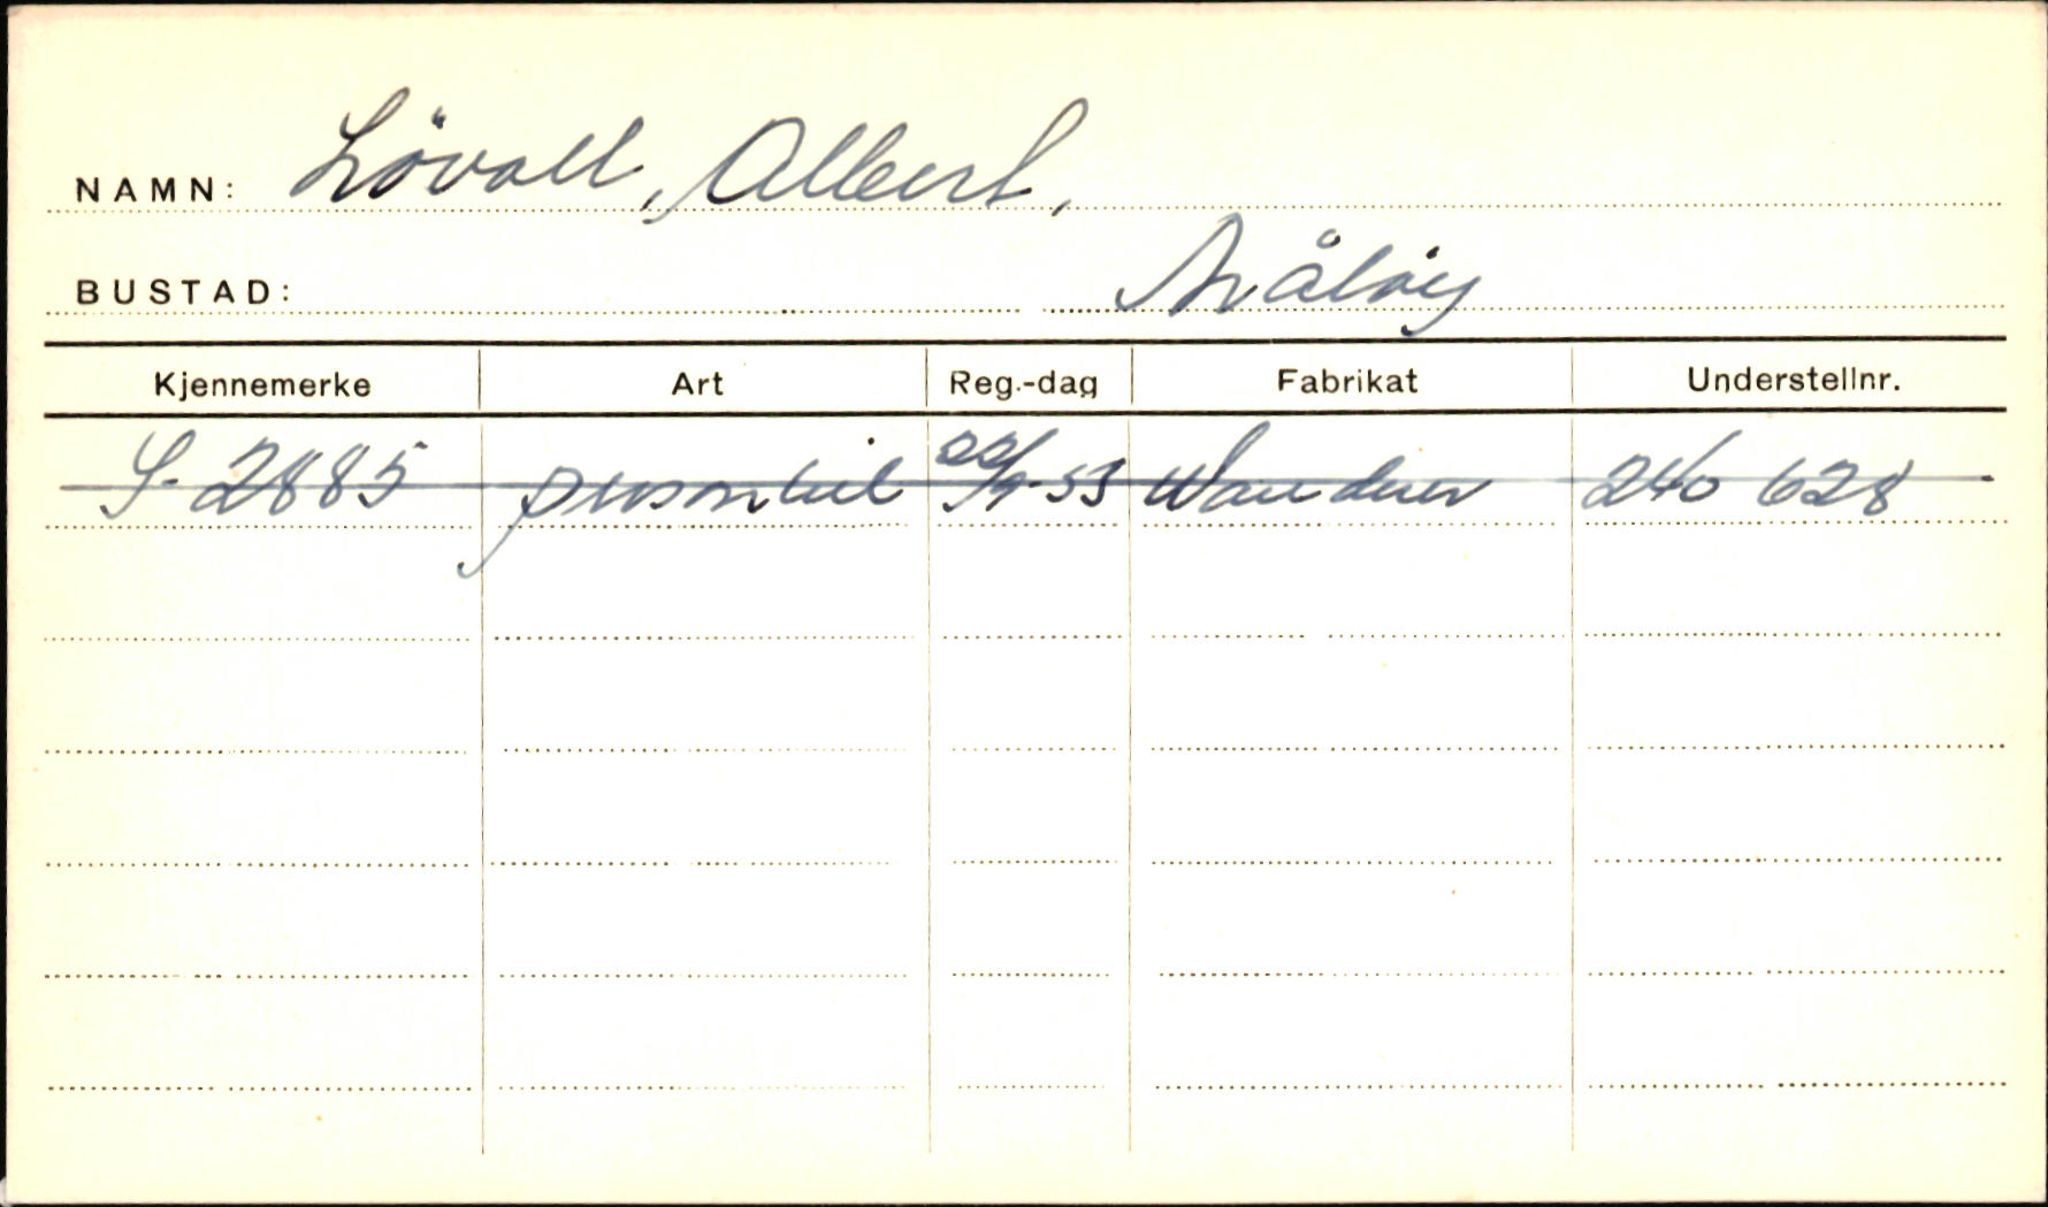 NAMN: Lövoll, Albert,
BUSTAD: Måløy
Kjennemerke Art Reg.-dag Fabrikat Understellnr.
S-2885 personbil 22/9-53 Wanderer 240 628